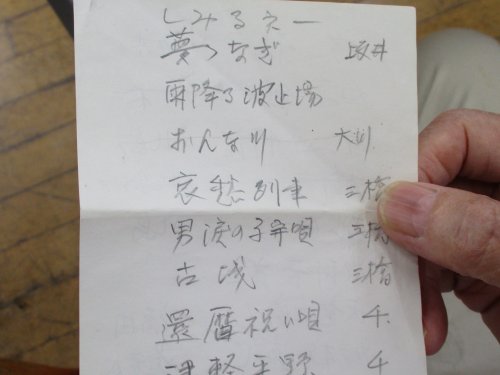 しみるえー
夢つなぎ 坂井
雨降る波止場
おんな川 大川
哀愁列車 三橋
男涙の子守唄 三橋
古城 三橋
還暦祝い唄 千
津軽平野 千